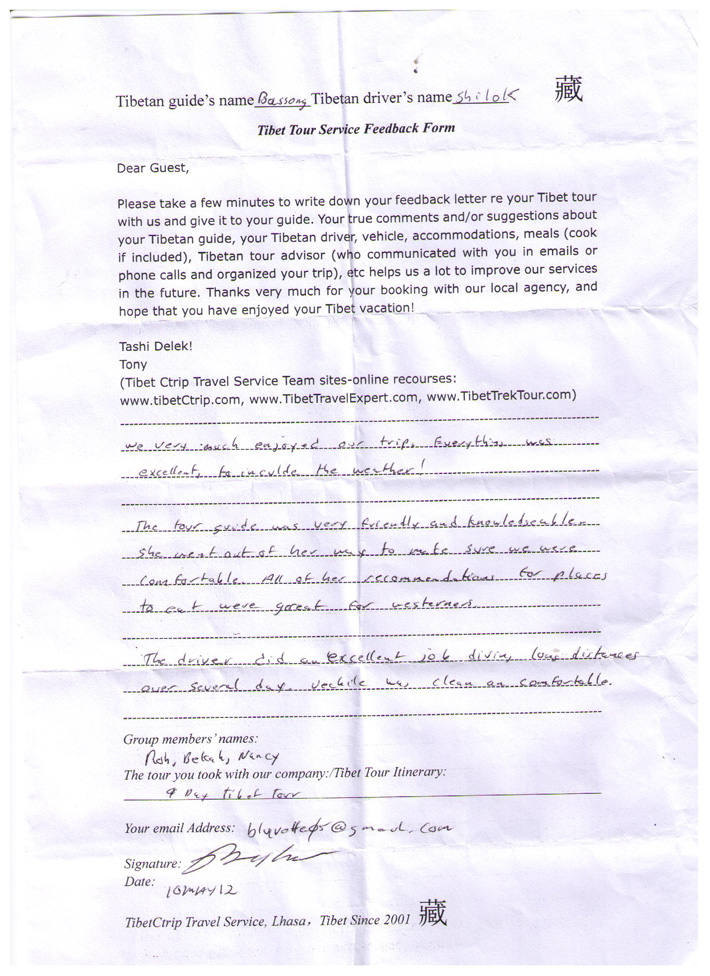 Tibetan guide's name Bassong Tibetan driver's name Shilok 藏
Tibet Tour Service Feedback Form
Dear Guest,
Please take a few minutes to write down your feedback letter re your Tibet tour
with us and give it to your guide. Your true comments and/or suggestions about
your Tibetan guide, your Tibetan driver, vehicle, accommodations, meals (cook
if included), Tibetan tour advisor (who communicated with you in emails or
phone calls and organized your trip), etc helps us a lot to improve our services
in the future. Thanks very much for your booking with our local agency, and
hope that you have enjoyed your Tibet vacation!
Tashi Delek!
Tony
(Tibet Ctrip Travel Service Team sites-online recourses:
www.tibetCtrip.com, www.TibetTravelExpert.com, www.TibetTrekTour.com)
we very much enjoyed our trip. Everything was
excellent, to inculde the weather!
The tour guide was very friendly and knowledseable.
She went out of her way to make sure we were
comfortable. All of her recommendations for places
to eat were goreat for westerners.
The driver did an excellent job diving long distances
over several day. Vechile was clean an comfortable.
Group members' names:
Bekah, Nancy
The tour you took with our company:/Tibet Tour Itinerary:
9 Day tibet Tour
Your email Address: @gmail.com
Signature:
Date: 10MAY12
TibetCtrip Travel Service, Lhasa, Tibet Since 2001 藏